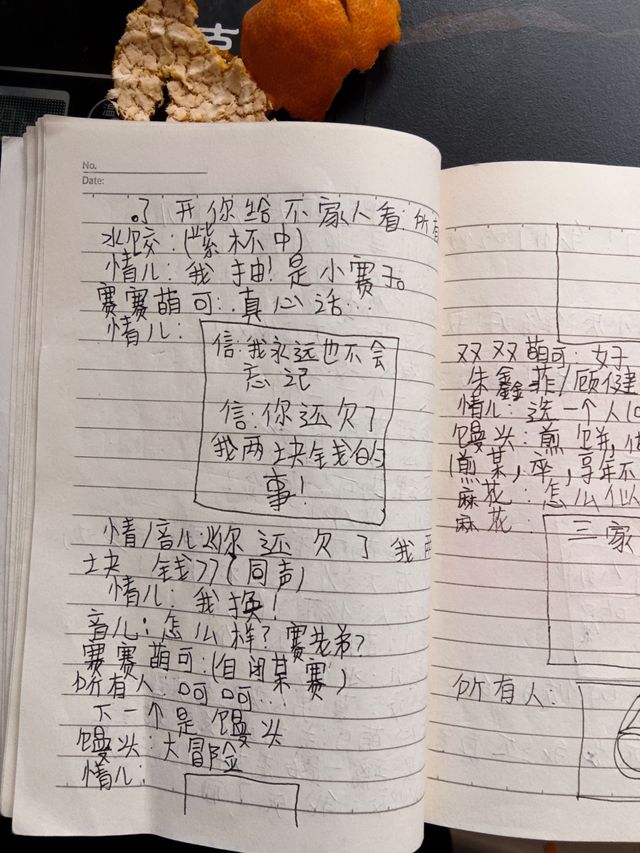 古
No.
Date:
了开你给不家人看:所有
水饺:(紫杯中)
情儿:我抽!是小赛子。
赛赛萌可:真心话…
情儿:
信:我永远也不会
忘记
信:你还欠了
我两块钱的
事!
情/音儿:《《你还欠了我两
块钱》》(同声)
情儿:我换!
音儿:怎么样?赛老弟?
赛赛萌可:(自闭某赛)
所有人:呵呵…
下一个是馒头
馒头:大冒险
情儿:
双双萌可:女子
朱鑫菲/顾健
情儿:选一个人
馒头:煎饼,
(煎某,卒,享年不
麻花:怎么似
麻花:
三家
所有人: